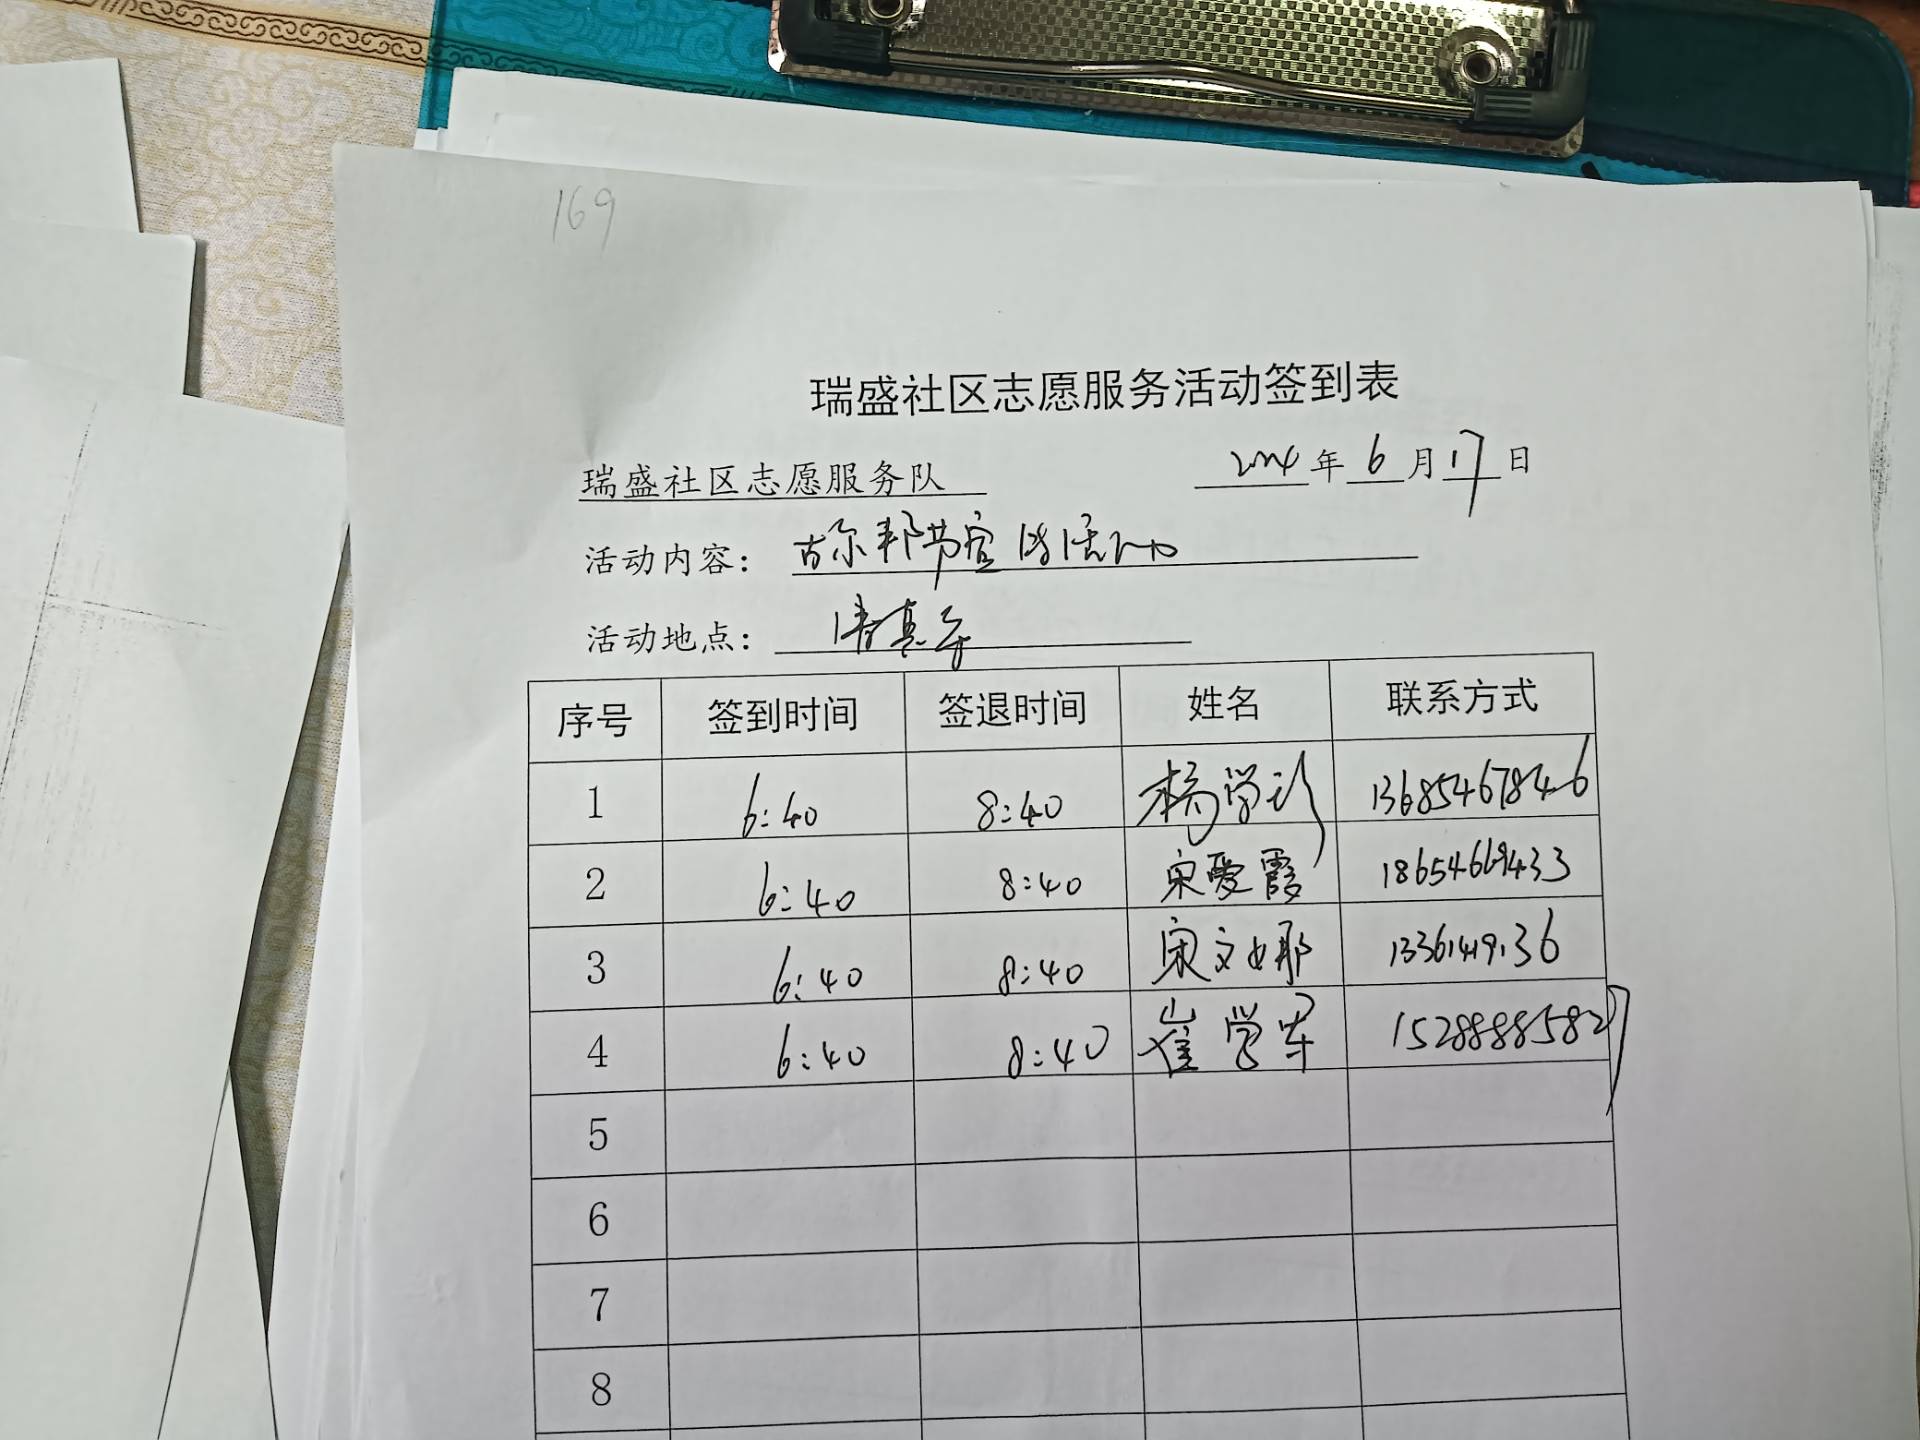 169
瑞盛社区志愿服务活动签到表
瑞盛社区志愿服务队 2024年6月17日
活动内容：古尔邦节宣传活动
活动地点：清真寺
序号 签到时间 签退时间 姓名 联系方式
1 6:40 8:40 杨学 13685467846
2 6:40 8:40 宋爱霞 18654669433
3 6:40 8:40 宋文娜
4 6:40 8:40 崔学军 15288885827
5
6
7
8